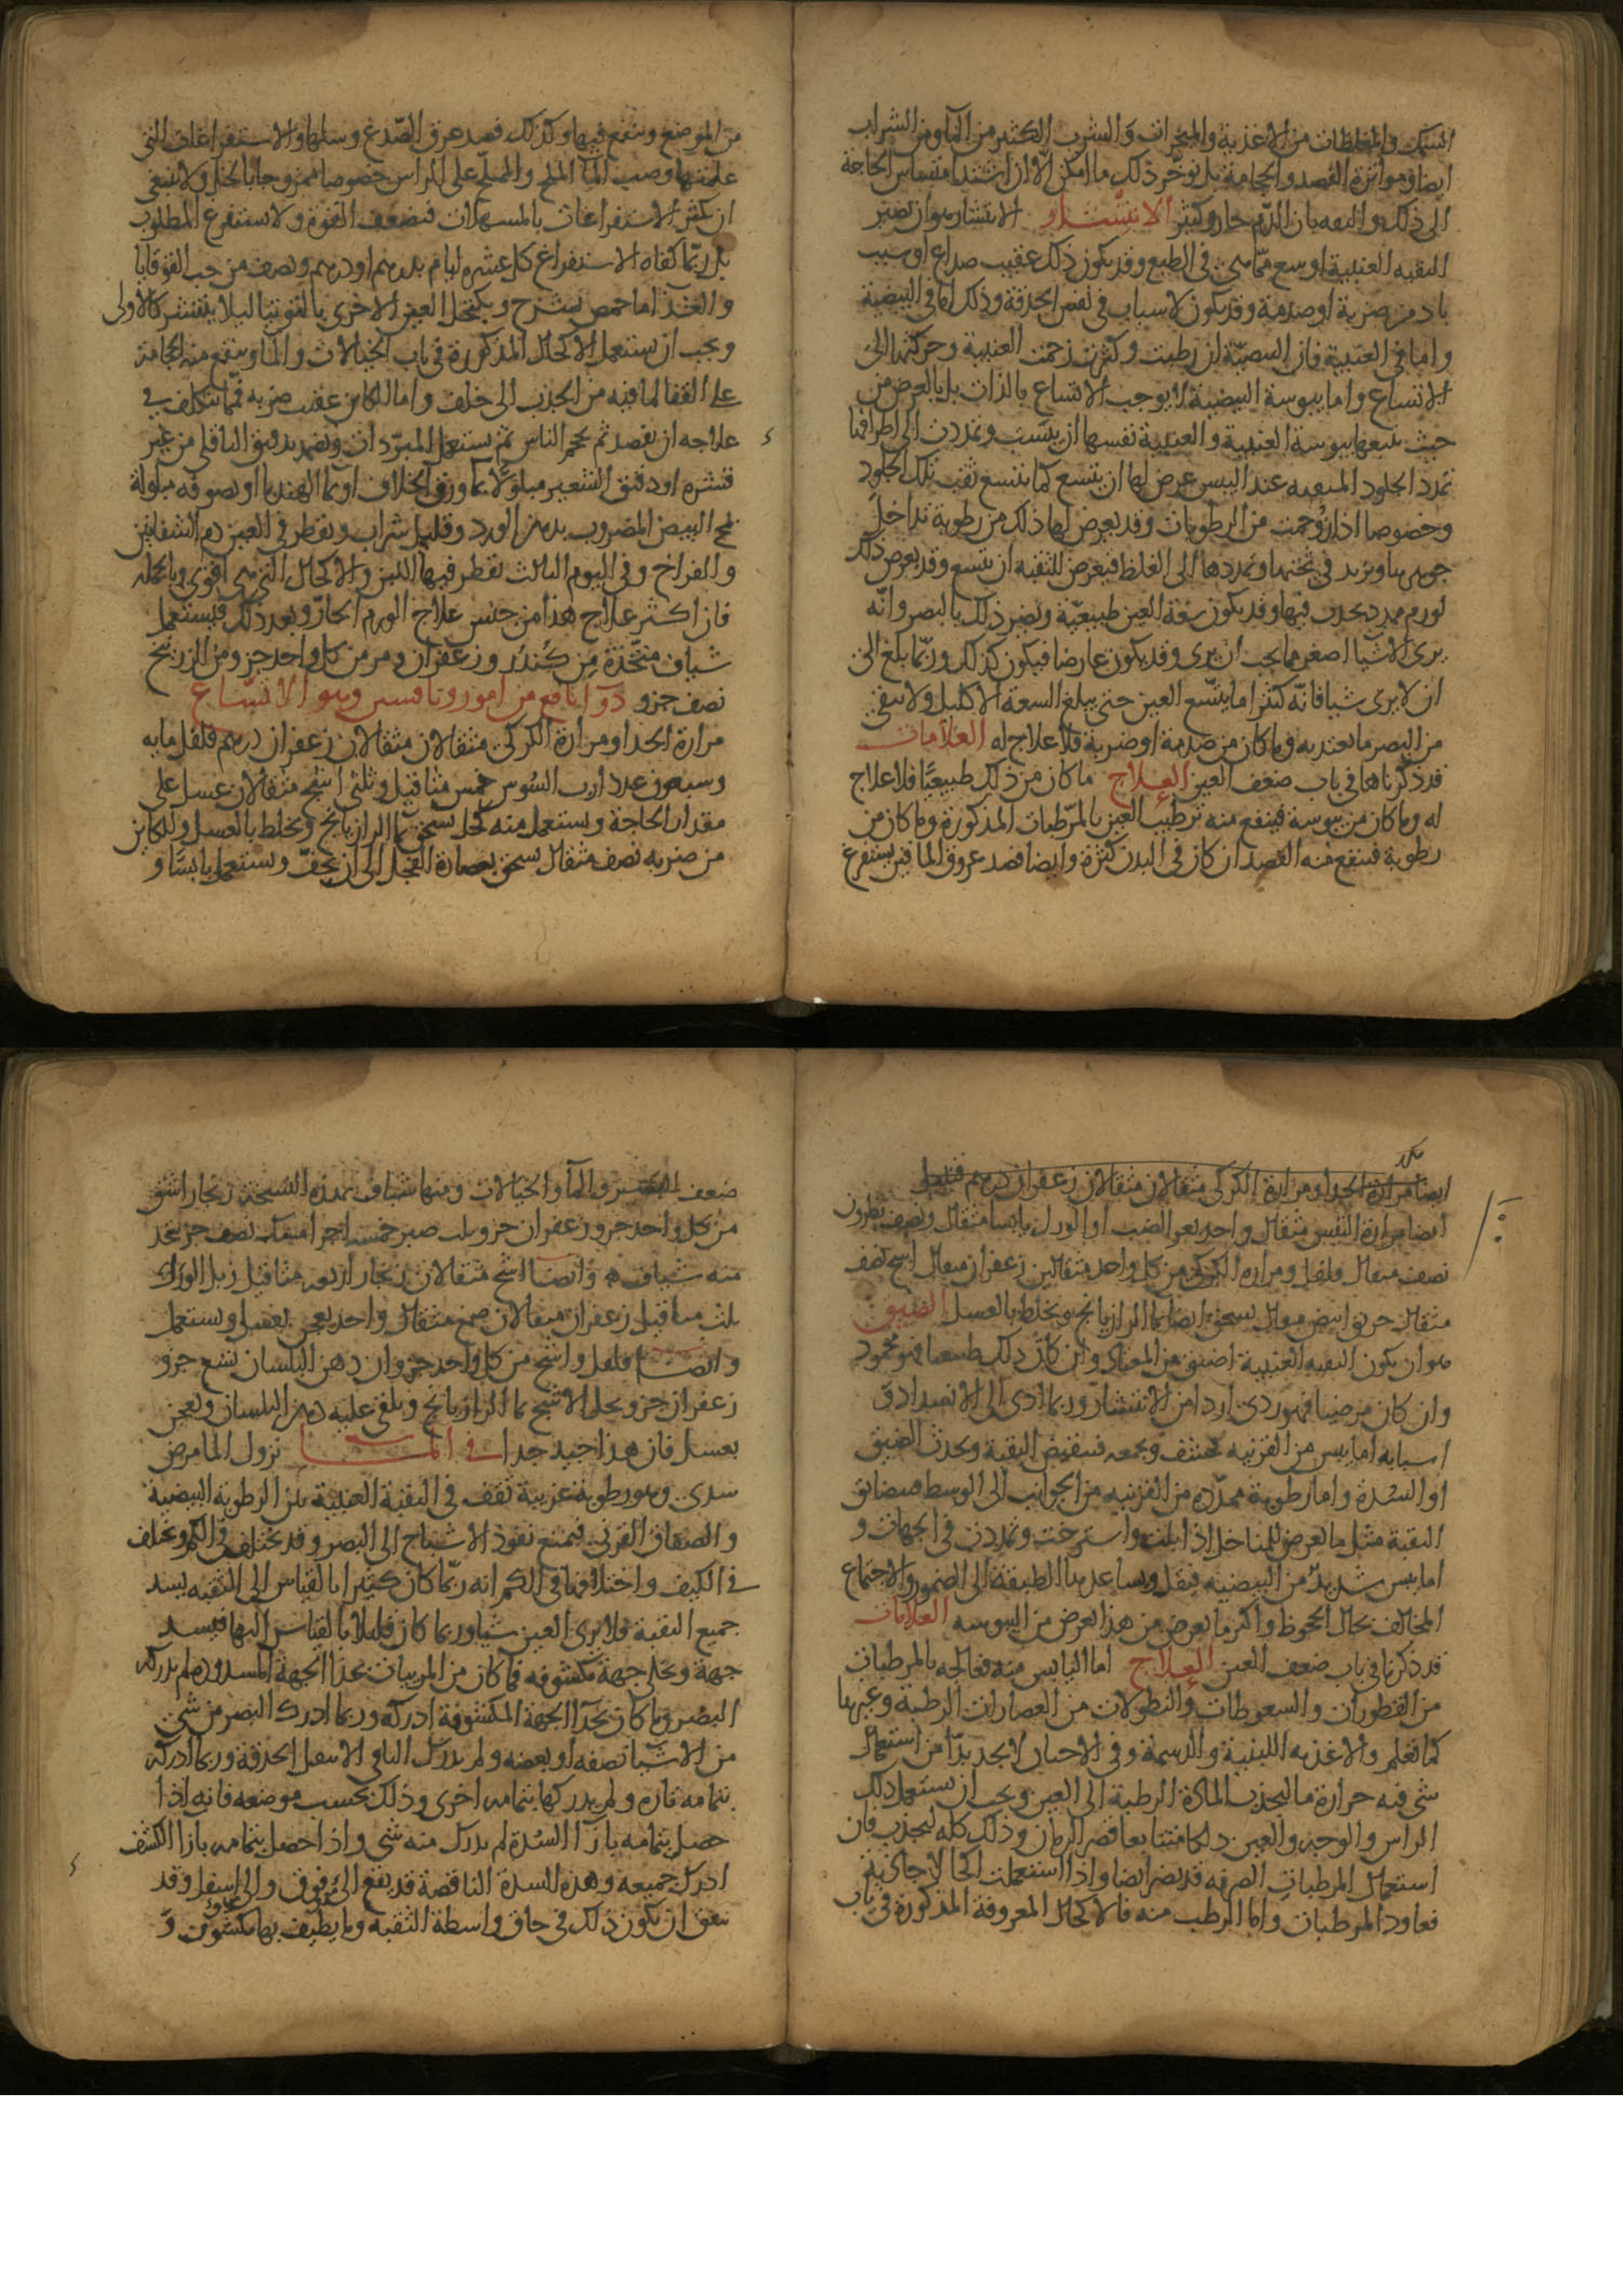 السمك والمغلظات من الاغذية والمبخرات والشرب الكثير من الماء ومن الشراب
ايضا ومواترة الفصد والحجامة بل يوخر ذلك ما امكن الا ان اشتد امتساس الحاجة
الى ذلك والثقه بان الدم حار وكثير الانتشار الانتشار هو ان تصير
الثقبه العنبية اوسع مما هي في الطبع وقد يكون ذلك عقيب صداع او سبب
باد من ضربة او صدمة وقد يكون لاسباب في نفس الحدقة وذلك اما في البيضية
واما في العنبية فان البيضية ان رطبت وكثرت زحمت العنبية وحركتها الى
الاتساع واما يبوسة البيضية لا يوجب الاتساع بالذات بل بالعرض من
حيث يتبعها يبوسة العنبية والعنبية نفسها ان يبست وتمددت الى اطرافها
تمدد الجلود المثقبه عند اليبس عرض لها ان يتسع كما يتسع ثقب تلك الجلود
وخصوصا اذا زوحمت من الرطوبات وقد يعرض لها ذلك من رطوبة تداخل
جوهرها ويزيد في ثخنها وتمددها الى الغلظ فيعرض للثقبه ان يتسع وقد يعرض ذلك
لورم ممدد يحدث فيها وقد يكون سعة العين طبيعية ويضر ذلك بالبصر وانه
يرى الاشيا اصغر مما يجب ان يرى وقد يكون عارضا فيكون كذلك وربما بلغ الى
ان لا يرى شيا فانه كثيرا ما يتسع العين حتى يبلغ السعة الاكليل ولا يبقى
من البصر ما يعتد به وما كان من صدمة او ضربة فلا علاج له العلامات
قد ذكرناها في باب ضعف العين العلاج ما كان من ذلك طبيعيا فلا علاج
له وما كان من يبوسة فينفع منه ترطيب العين بالمرطبات المذكورة وما كان من
رطوبة فينفع منه الفصد ان كان في البدن كثرة وايضا فصد عروق الماقين يستفرغ
من الموضع وينفع فيها وكذلك فصد عرق الصدغ وسلها والاستفراغات التي
علمتها وصب الماء الملح والمملح على الراس خصوصا ممزوجا بالخل ولا ينبغي
ان يكثر الاستفراغات بالمسهلات فتضعف القوة ولا يستفرغ المطلوب
بل ربما كفاه الاستفراغ كل عشرة ايام بدرهم او درهم ونصف من حب القوقايا
والغذا ما حمص بشيرج ويكتحل العين الاخرى بالتوتيا ليلا ينتشر كالاولى
ويجب ان يستعمل الاكحال المذكورة في باب الخيالات والما وينفع منه الحجامة
على القفا لما فيه من الجذب الى خلف واما الكاين عقيب ضربه فمما يتكلف في
علاجه ان يفصد ثم يحجم الراس ثم يستعمل المبردات ويضمد بدقيق الباقلى من غير
قشره او دقيق الشعير مبلولا بما ورق الخلاف او بما الهندبا او بصوفه مبلولة
بمح البيض المضروب بدهن الورد وقليل شراب ويقطر في العين دم الشفانين
والفراخ وفي اليوم الثالث يقطر فيها اللبن والاكحال التي هي اقوى وبالجملة
فان اكثر علاج هذا من جنس علاج الورم الحار وبعد ذلك فيستعمل
شياف متخذة من كندر وزعفران ومر من كل واحد جزو ومن الزرنيخ
نصف جزو دوا نافع من امورونافسيس وهو الاتساع
مرارة الجدا ومرارة الكركي مثقالان مثقالان زعفران درهم فلفل مايه
وسبعون عددا رب السوس خمس مثاقيل وثلثي اشج مثقالان عسل على
مقدار الحاجة ويستعمل منه كحل يسحق بما الرازيانج ويخلط بالعسل وللكاين
من ضربه نصف مثقال يسحق بعصارة الفجل الى ان يجف ويستعمل يابسا و
ايضا مرارة الجدا ومرارة الكركي مثقالان مثقالان زعفران درهم فلفل
ايضا مرارة التيس مثقال واحد بعر الضب او الورل يابسا مثقال ونصف نطرون
نصف مثقال فلفل ومرارة الكركي من كل واحد مثقالين زعفران مثقال اشج نصف
مثقال خربق ابيض مثقال يسحق ايضا بما الرازيانج ويخلط بالعسل الضيق
هو ان يكون الثقبه العنبية اضيق من المعتاد وان كان ذلك طبيعيا فهو محمود
وان كان مرضيا فهو ردي اردا من الانتشار وربما ادى الى الانسداد
اسبابه اما يبس من القرنيه يحشف ويجمعه فينقبض الثقبة ويحدث الضيق
او السدة واما رطوبة ممددة من القرنيه من الجوانب الى الوسط فيتضايق
الثقبة مثل ما يعرض للمناخل اذا ابلت واسترخت وتمددت في الجهات و
اما يبس شديد من البيضيه فيقل ويساعدها الطبقة الى الضمور والاجتماع
المخالف بحال الجحوظ واكثر ما يعرض من هذا يعرض من اليبوسه العلامات
قد ذكرنا في باب ضعف العين العلاج اما اليابس منه فعالجه بالمرطبات
من القطورات والسعوطات والنطولات من العصارات الرطبة وغيرها
كما تعلم والاغذيه اللينية والدسمة وفي الاحيان لا يجد بدا من استعمال
شي فيه حرارة ما ليجذب المادة الرطبة الى العين ويجب ان يستعمل دلك
الراس والوجه والعين دلكا متتابعا قصير الزمان وذلك كله ليجذب فان
استعمال المرطبات الصرفه قد يضر ايضا واذا استعملت اكحالا جاذبة
فعاود المرطبات واما الرطب منه فالاكحال المعروفة المذكورة في باب
ضعف البصر والماء والخيالات ومنها شياف بهذه النسخة زنجار اشق
من كل واحد جزو زعفران جزو وثلث صبر خمسة اجزا مسك نصف جزو يتخذ
منه شياف وايضا اشج مثقالان زنجار اربعة مثاقيل زبل الورل
ثلث مثاقيل زعفران مثقالان صمغ مثقال واحد يعجن بعسل ويستعمل
وايضا فلفل واشج من كل واحد جزوان دهن البلسان تسع جزو
زعفران جزو يحل الاشج بما الرازيانج ويلقى عليه دهن البلسان ويعجن
بعسل فان هذا جيد جدا في الما نزول الما مرض
سدي وهو رطوبة غريبة تقف في الثقبة العنبية بين الرطوبة البيضية
والصفاق القرني فيمنع نفوذ الاشباح الى البصر وقد يختلف في الكم ويختلف
في الكيف واختلافها في الكم انه ربما كان كثيرا بالقياس الى الثقبه يسد
جميع الثقبة فلا يرى العين شيا وربما كان قليلا بالقياس اليها فيسد
جهة ويخلي جهة مكشوفه فما كان من المرييات بحذا الجهة المسدوده لم يدركه
البصر وما كان بحذا الجهة المكشوفة ادركه وربما ادرك البصر من شي
من الاشيا نصفه او بعضه ولم يدرك الباقي الا بنقل الحدقة وربما ادركه
بتمامه تارة ولم يدركها بتمامه اخرى وذلك بحسب موضعه فانه اذا
حصل بتمامه بازا السدة لم يدرك منه شي واذا حصل بتمامه بازا الكشف
ادرك جميعه وهذه السدة الناقصة قد يقع الى فوق والى اسفل وقد
يتفق ان يكون ذلك في حاق واسطة الثقبه وما يطيف بها مكشوف و